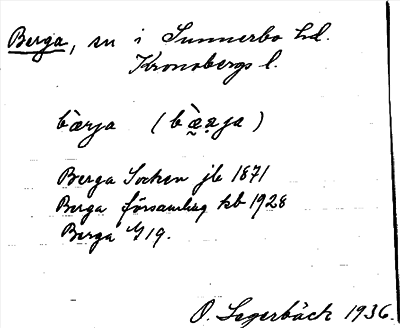 Berga, sn i Sunnerbo hd.
Kronobergs l.
bærja (bæ̀rja)
Berga Socken jb 1871
Berga församling kb 1928
Berga 19.
O. Lagerbäck 1936.